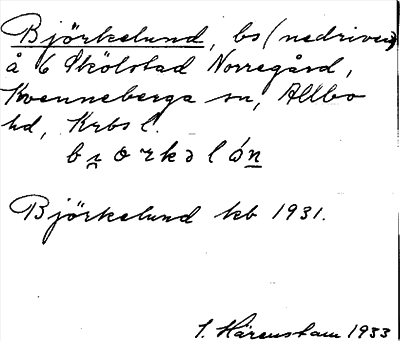 Björkelund, bs (nedriven)
å 6 Skölstad Norregård,
Kvenneberga sn, Allbo
hd, Krbs l.
b ı̯ o r k ə l ó n
Björkelund kb 1931.
S. Härenstam 1933